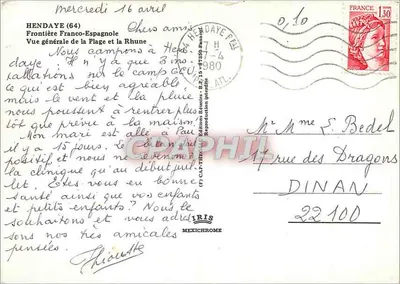 mercredi 16 avril
HENDAYE (64)
Frontière Franco-Espagnole
Vue générale de la Plage et la Rhune
Chers amis
Nous campons à Hen
daye. Il n'y a que 3 ins
tallations sur le camp GCU,
ce qui est bien agréable
mais le vent et la pluie
nous poussent à rentrer plus
tôt que prévu à la maison.
mon mari est allé à Pau
il y a 15 jours. Le bilan est
positif et nous ne revenons à
la clinique qu'au début juil
let. Etes vous en bonne
santé ainsi que vos enfants
et petits enfants? Nous le
souhaitons et vous adres
sons nos très amicales
pensées.
HENDAYE
1980
0,10
1,30
M. Mme L. Bedel
rue des Dragons
DINAN
22100
IRIS
MEXICHROME
CARTE POSTALE